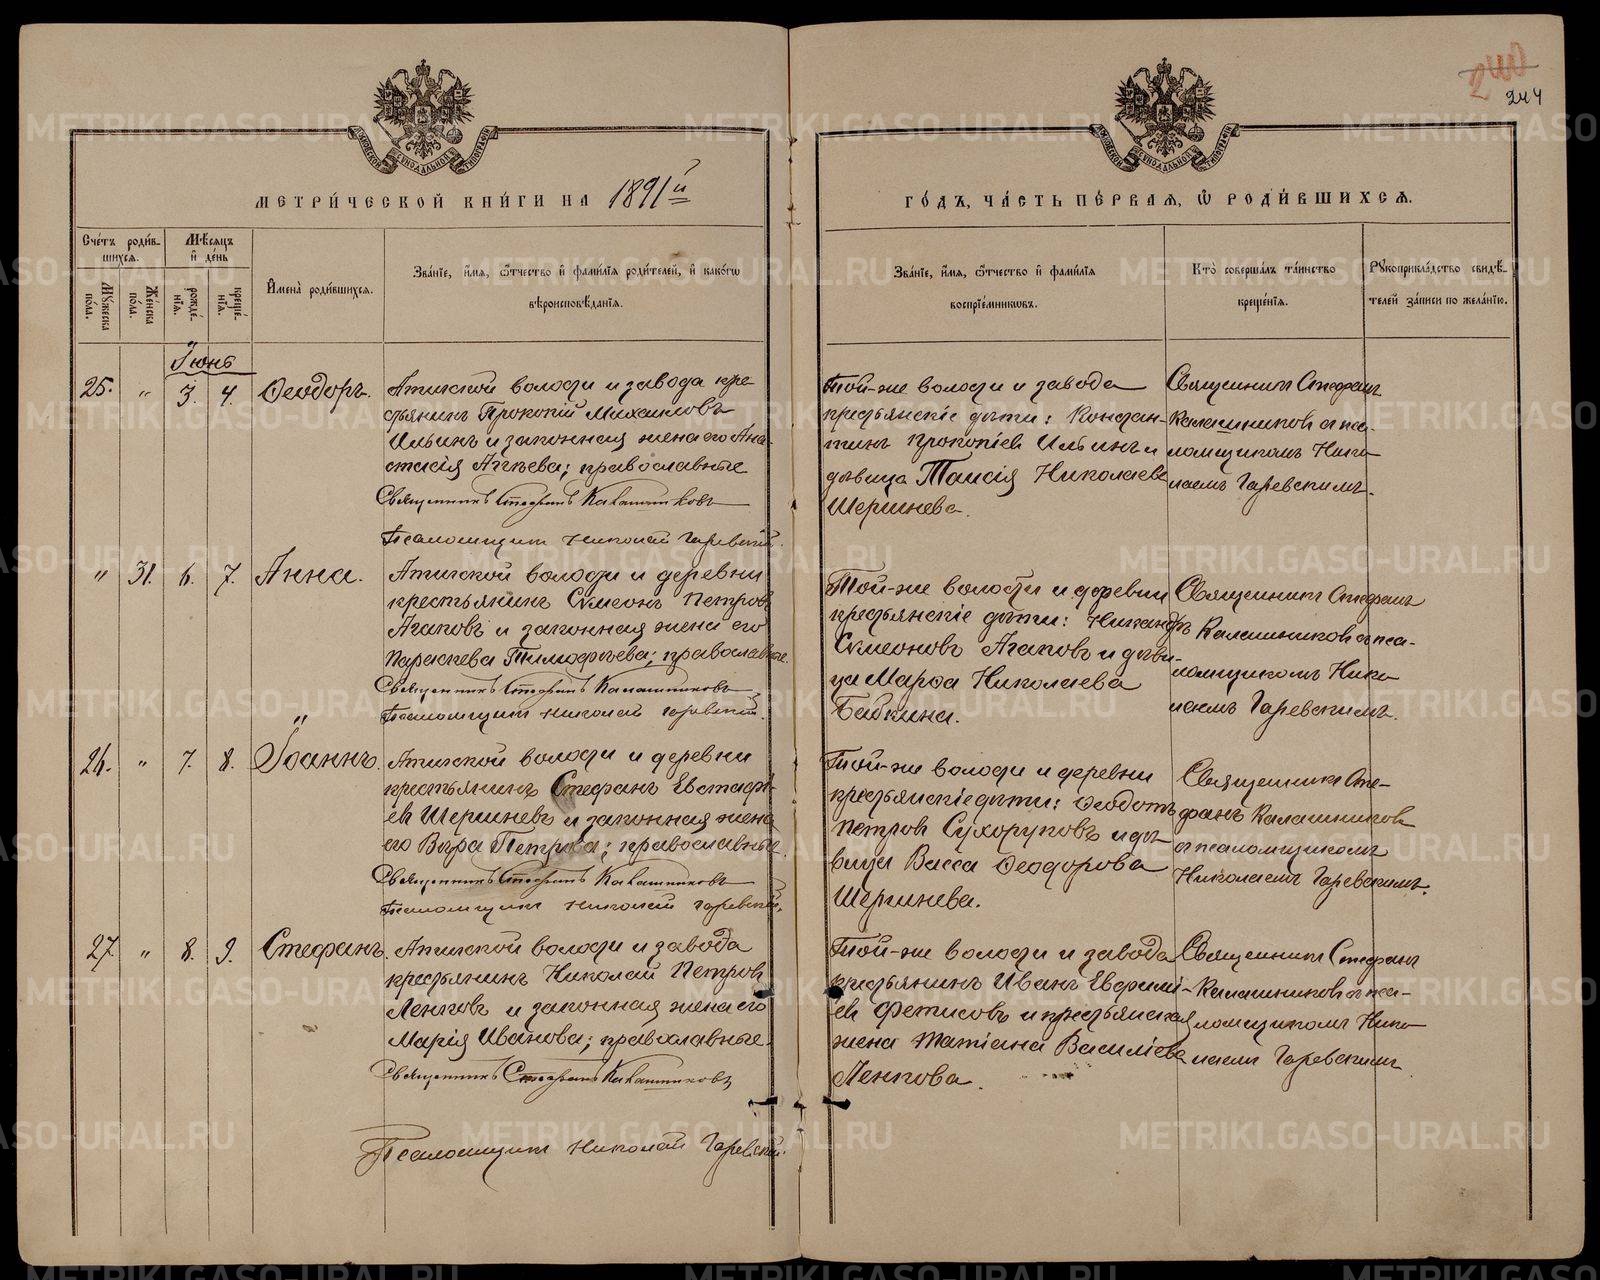 240
244
МЕТРИ́ЧЕСКОЙ КНИ́ГИ НА 1891й
ГО́ДЪ, ЧА́СТЬ ПЕ́РВАѦ, Ѡ РОДИ́ВШИХСѦ.
Сче́тъ роди́в-
шихсѧ.
Мѣсѧцъ
и де́нь
Мꙋжеска
по́ла.
Же́нска
по́ла.
рожде́-
нїѧ.
креще́-
нїѧ.
Имена̀ роди́вшихсѧ.
Зва́нїе, и́мѧ, ѻ́тчество и фами́лїѧ роди́телей, и како́гѡ
вѣроисповѣ́данїѧ.
Зва́нїе, и́мѧ, ѻ́тчество и фами́лїѧ
воспрїе́мникѡвъ.
Кто̀ соверша́лъ та́инство
креще́нїѧ.
Рꙋкоприкла́дство свидѣ́-
телей за́писи по жела́нїю.
Іюнь
25. " 3. 4. Ѳеодоръ.
Атигской волости и завода кре-
стьянинъ Прокопій Михаиловъ
Ильинъ и законная жена его Ана-
стасія Агпева; православные
Священникъ Стефанъ Калашниковъ
Псаломщикъ Николай Гаревскій.
Той-же волости и завода
крестьянскіе дѣти: Констан-
тинъ Прокопіев Ильинъ и
дѣвица Таисія Николаева
Шершнева.
Священникъ Стефанъ
Калашников съ пса-
ломщикомъ Нико-
лаемъ Гаревскимъ.
" 31. 6. 7. Анна.
Атигской волости и деревни
крестьянинъ Симеонъ Петров
Агаповъ и законная жена его
Параскева Тимофѣева; православные.
Священникъ Стефанъ Калашниковъ
Псаломщикъ Николай Гаревскій.
Той-же волости и деревни
крестьянскіе дѣти: Никандръ
Симеоновъ Агаповъ и дѣви-
ца Марѳа Николаева
Бабкина.
Священникъ Стефанъ
Калашников съ пса-
ломщикомъ Нико-
лаемъ Гаревскимъ.
26. " 7. 8. Іоаннъ.
Атигской волости и деревни
крестьянинъ Стефанъ Евстафі-
евъ Шершневъ и законная жена
его Вѣра Петрова; православные.
Священникъ Стефанъ Калашниковъ
Псаломщикъ Николай Гаревскій.
Той-же волости и деревни
крестьянскіе дѣти: Ѳеодотъ
Петров Сухоруковъ и дѣ-
вица Васса Ѳеодорова
Шершнева.
Священникъ Сте-
фанъ Калашников
съ псаломщикомъ
Николаемъ Гаревскимъ.
27. " 8. 9. Стефанъ.
Атигской волости и завода
крестьянинъ Николай Петров
Ленковъ и законная жена его
Марія Иванова; православные.
Священникъ Стефанъ Калашниковъ
Псаломщикъ Николай Гаревскій.
Той-же волости и завода
крестьянинъ Иванъ Евфимі-
ев Фетисовъ и крестьянская
жена Татіана Василіева
Ленкова.
Священникъ Стефанъ
Калашников съ пса-
ломщикомъ Нико-
лаемъ Гаревскимъ
METRIKI.GASO-URAL.RU